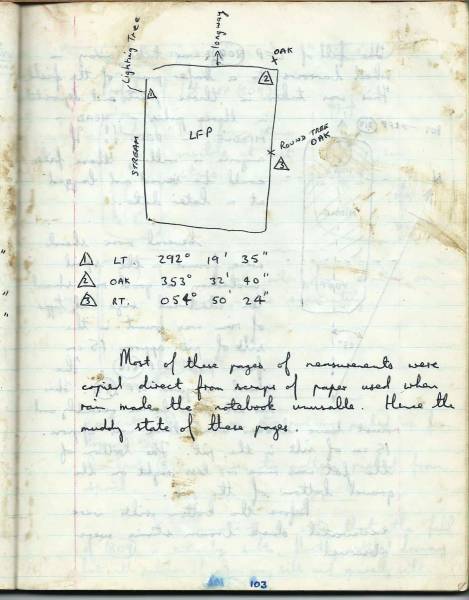 longway
OAK
Lighting Tree
2
1
LFP
STREAM
ROUND TREE
OAK
3
1 LT. 292° 19' 35"
2 OAK 353° 32' 40"
3 RT. 054° 50' 24"
Most of these pages of measurements were
copied direct from scraps of paper used when
rain made the notebook unusable. Hence the
muddy state of these pages.
103